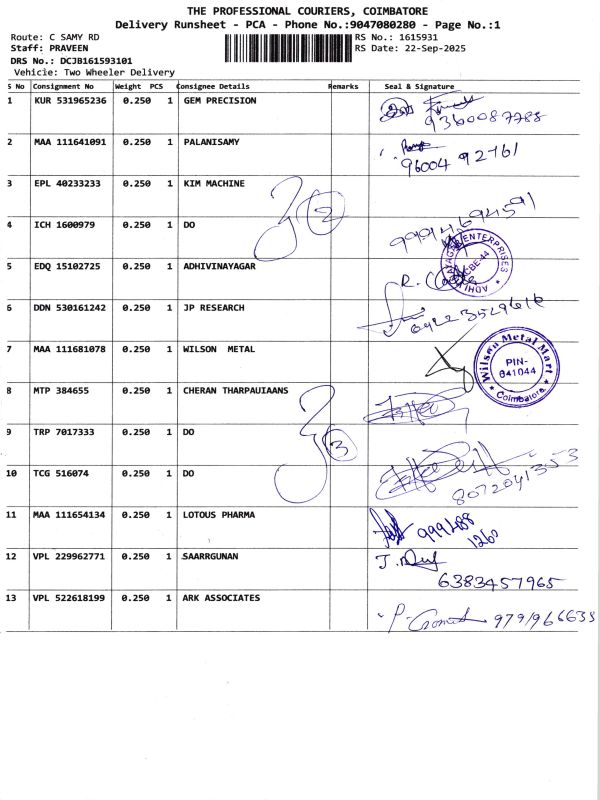 THE PROFESSIONAL COURIERS, COIMBATORE
Delivery Runsheet - PCA - Phone No.:9047080280 - Page No.:1
Route: C SAMY RD
RS No.: 1615931
Staff: PRAVEEN
RS Date: 22-Sep-2025
DRS No.: DCJB161593101
Vehicle: Two Wheeler Delivery
S No Consignment No Weight PCS Consignee Details Remarks Seal & Signature
1 KUR 531965236 0.250 1 GEM PRECISION
9360087788
2 MAA 111641091 0.250 1 PALANISAMY
96004 92761
3 EPL 40233233 0.250 1 KIM MACHINE
2
4 ICH 1600979 0.250 1 DO
9994694591
5 EDQ 15102725 0.250 1 ADHIVINAYAGAR
R.
ENTERPRISES
CBE-44
6 DDN 530161242 0.250 1 JP RESEARCH
7 MAA 111681078 0.250 1 WILSON METAL
Wilson Metal Mart
PIN-
641044
Coimbatore
8 MTP 384655 0.250 1 CHERAN THARPAUIAANS
9 TRP 7017333 0.250 1 DO
3
10 TCG 516074 0.250 1 DO
8072041353
11 MAA 111654134 0.250 1 LOTOUS PHARMA
999488
1260
12 VPL 229962771 0.250 1 SAARRGUNAN
6383457965
13 VPL 522618199 0.250 1 ARK ASSOCIATES
9791966638